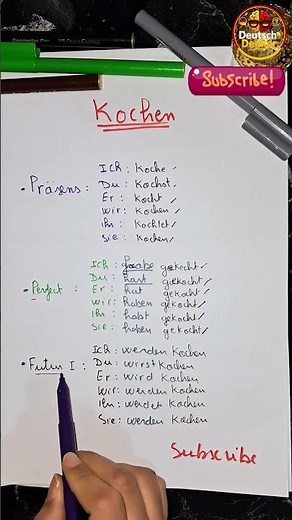 Deutsch
Subscribe!
Kochen
• Präsens :
Ich : Koche
Du : Kochst
Er : Kocht
Wir : Kochen
Ihr : Kochtet
Sie : Kochen
• Perfect :
Ich : habe gekocht
Du : hast gekocht
Er : hat gekocht
Wir : haben gekocht
Ihr : habt gekocht
Sie : haben gekocht
• Futur I :
Ich : werden Kochen
Du : wirst Kochen
Er : wird Kochen
Wir : werden Kochen
Ihr : werdet Kochen
Sie : werden Kochen
Subscribe